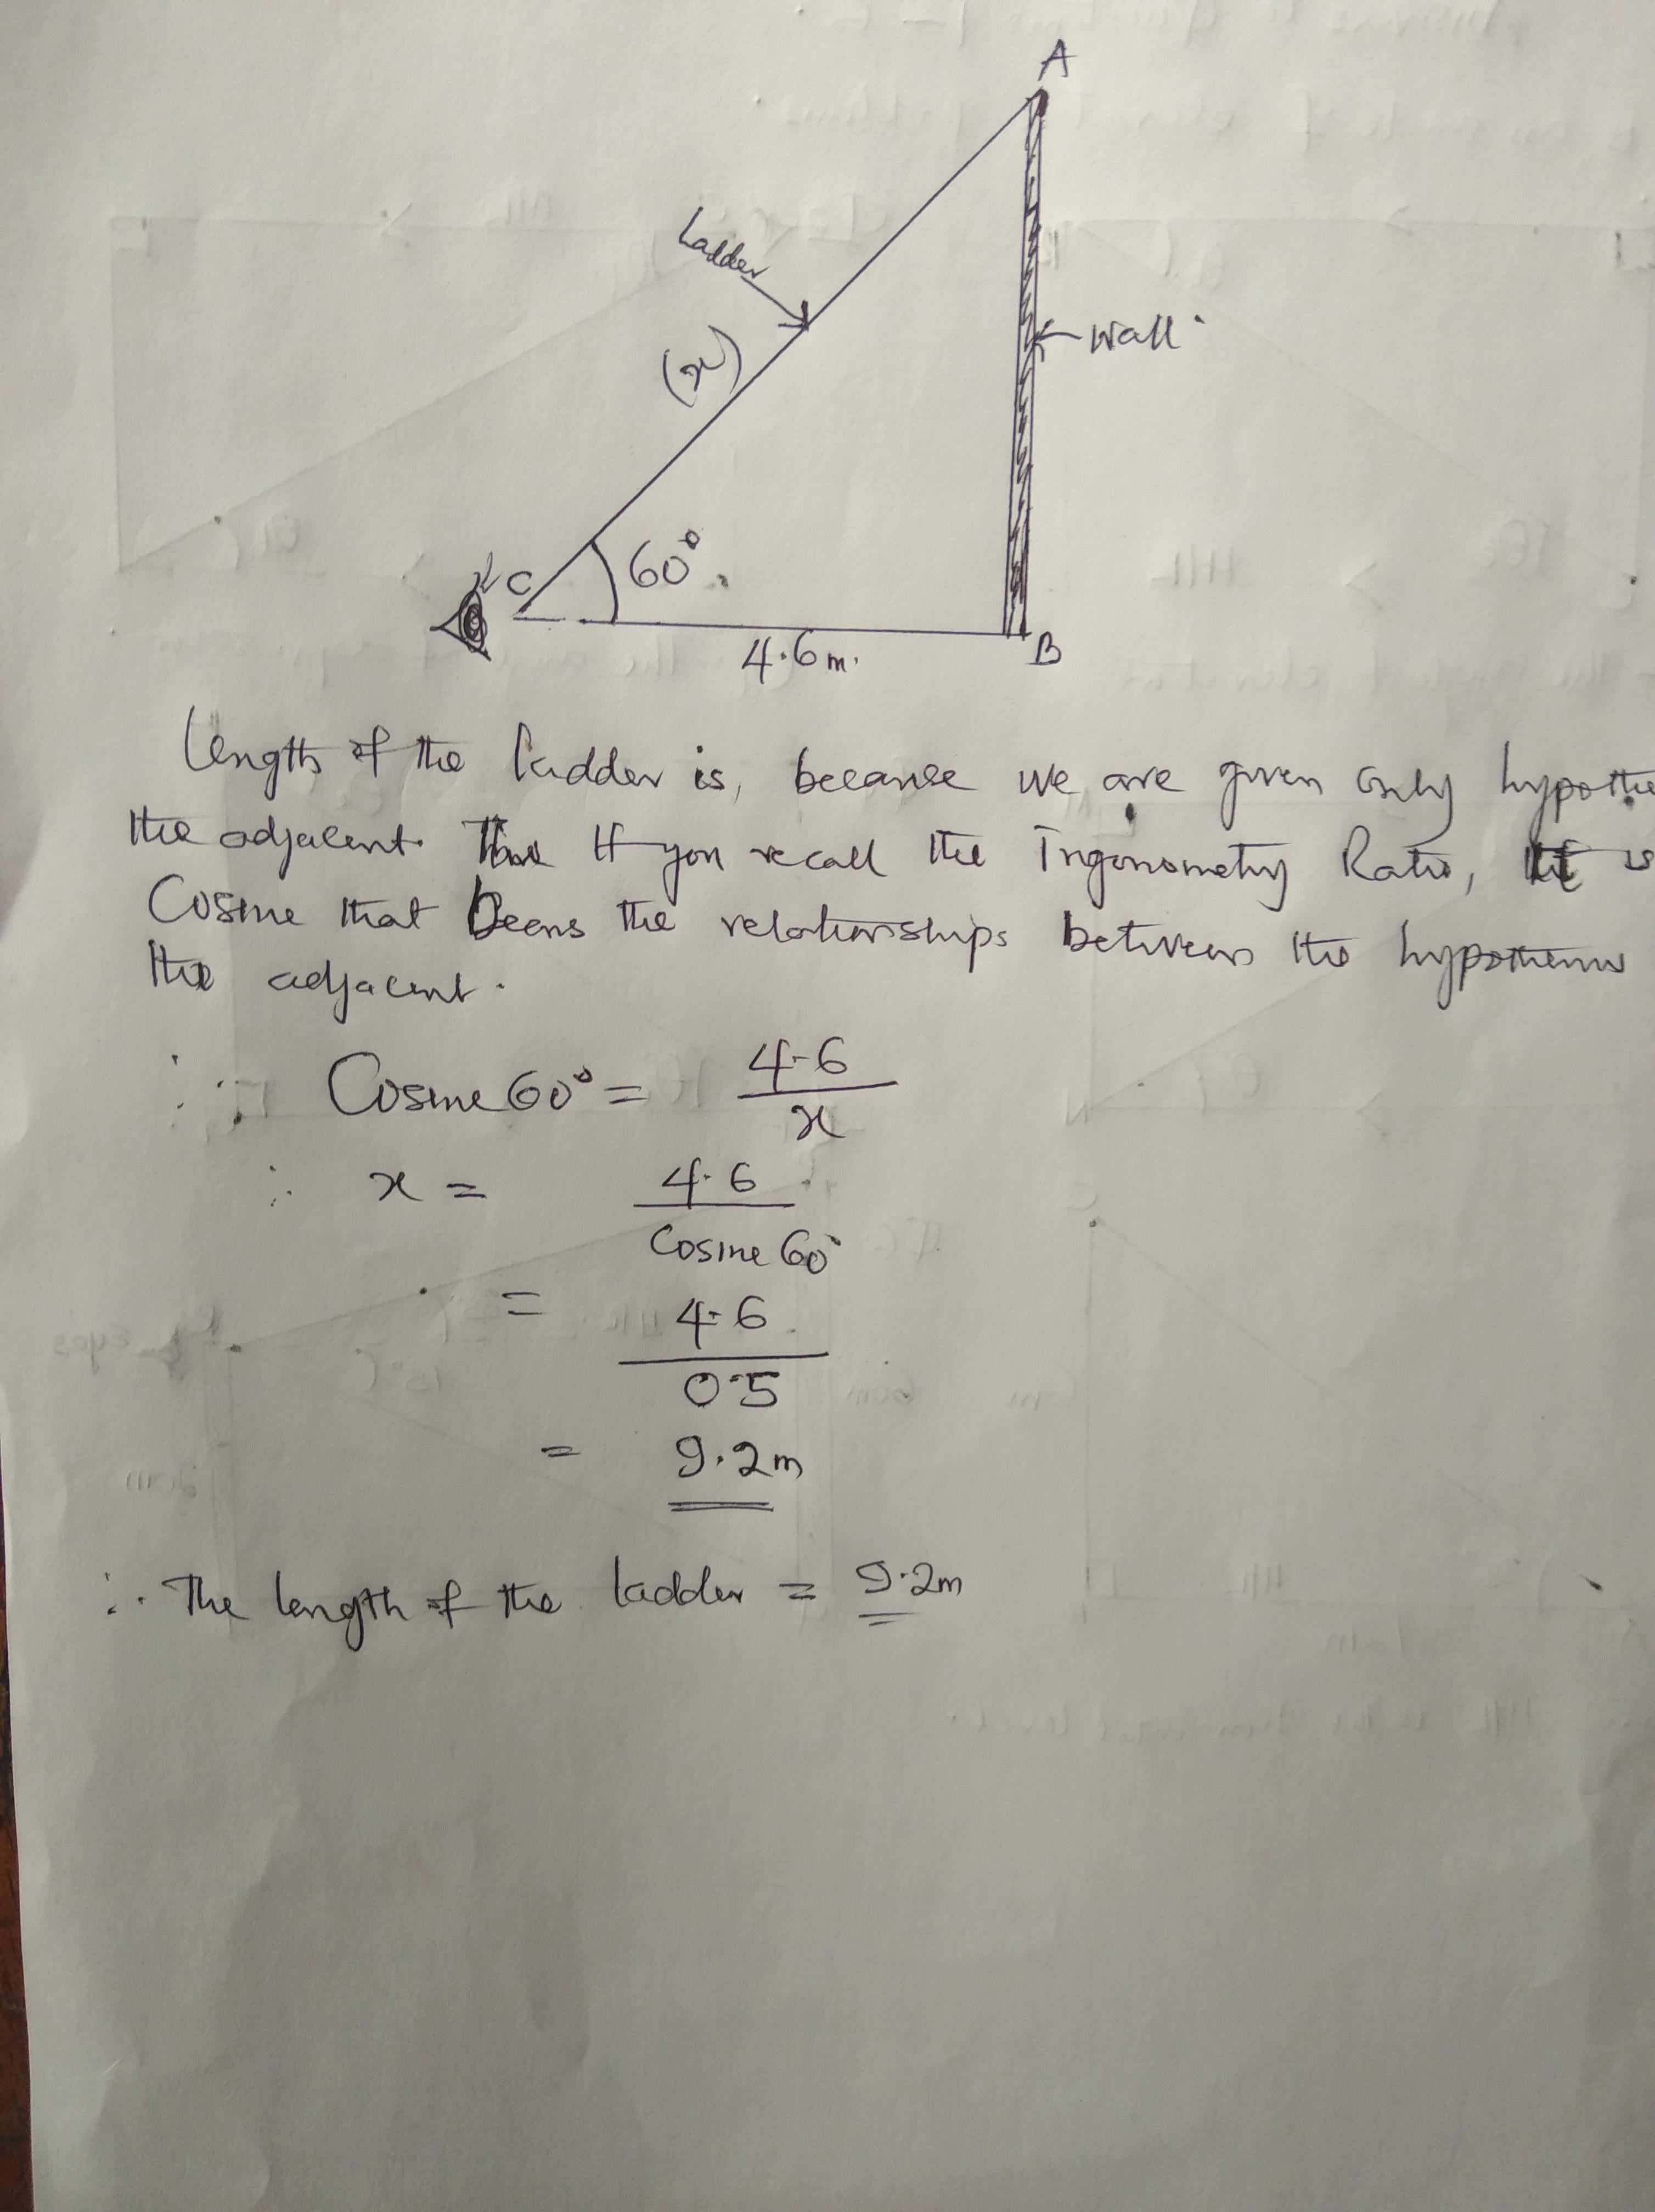 A
Ladder
(x)
Wall
C
60°
4.6m.
B
Length of the ladder is, because we are given only hypothe
the adjacent. If you recall the Trigonometry Ratio, it is
Cosine that bears the relationships between the hypotenus
the adjacent.
∴ Cosine 60° = 4.6
x
∴ x = 4.6
Cosine 60°
= 4.6
0.5
= 9.2m
∴ The length of the ladder = 9.2m